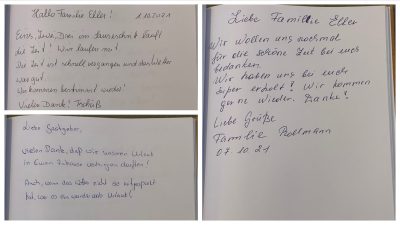 Hallo Familie Eller!
1.10.2021
Eins, Zwei, Drei im Sauseschritt läuft
die Zeit! Wir laufen mit
Die Zeit ist schnell vergangen und das Wetter
war gut.
Wir kommen bestimmt wieder!
Vielen Dank! Tschüß
Liebe Gastgeber,
vielen Dank, daß wir unseren Urlaub
in Eurem Zuhause verbringen durften!
Auch, wenn das Wetter nicht so mitgespielt
hat, war es ein wundervoller Urlaub!
Liebe Familie Eller
Wir wollen uns nochmal
für die schöne Zeit bei euch
bedanken.
Wir haben uns bei euch
super erholt! Wir kommen
gerne wieder. Danke!
Liebe Grüße
Familie
07.10.21